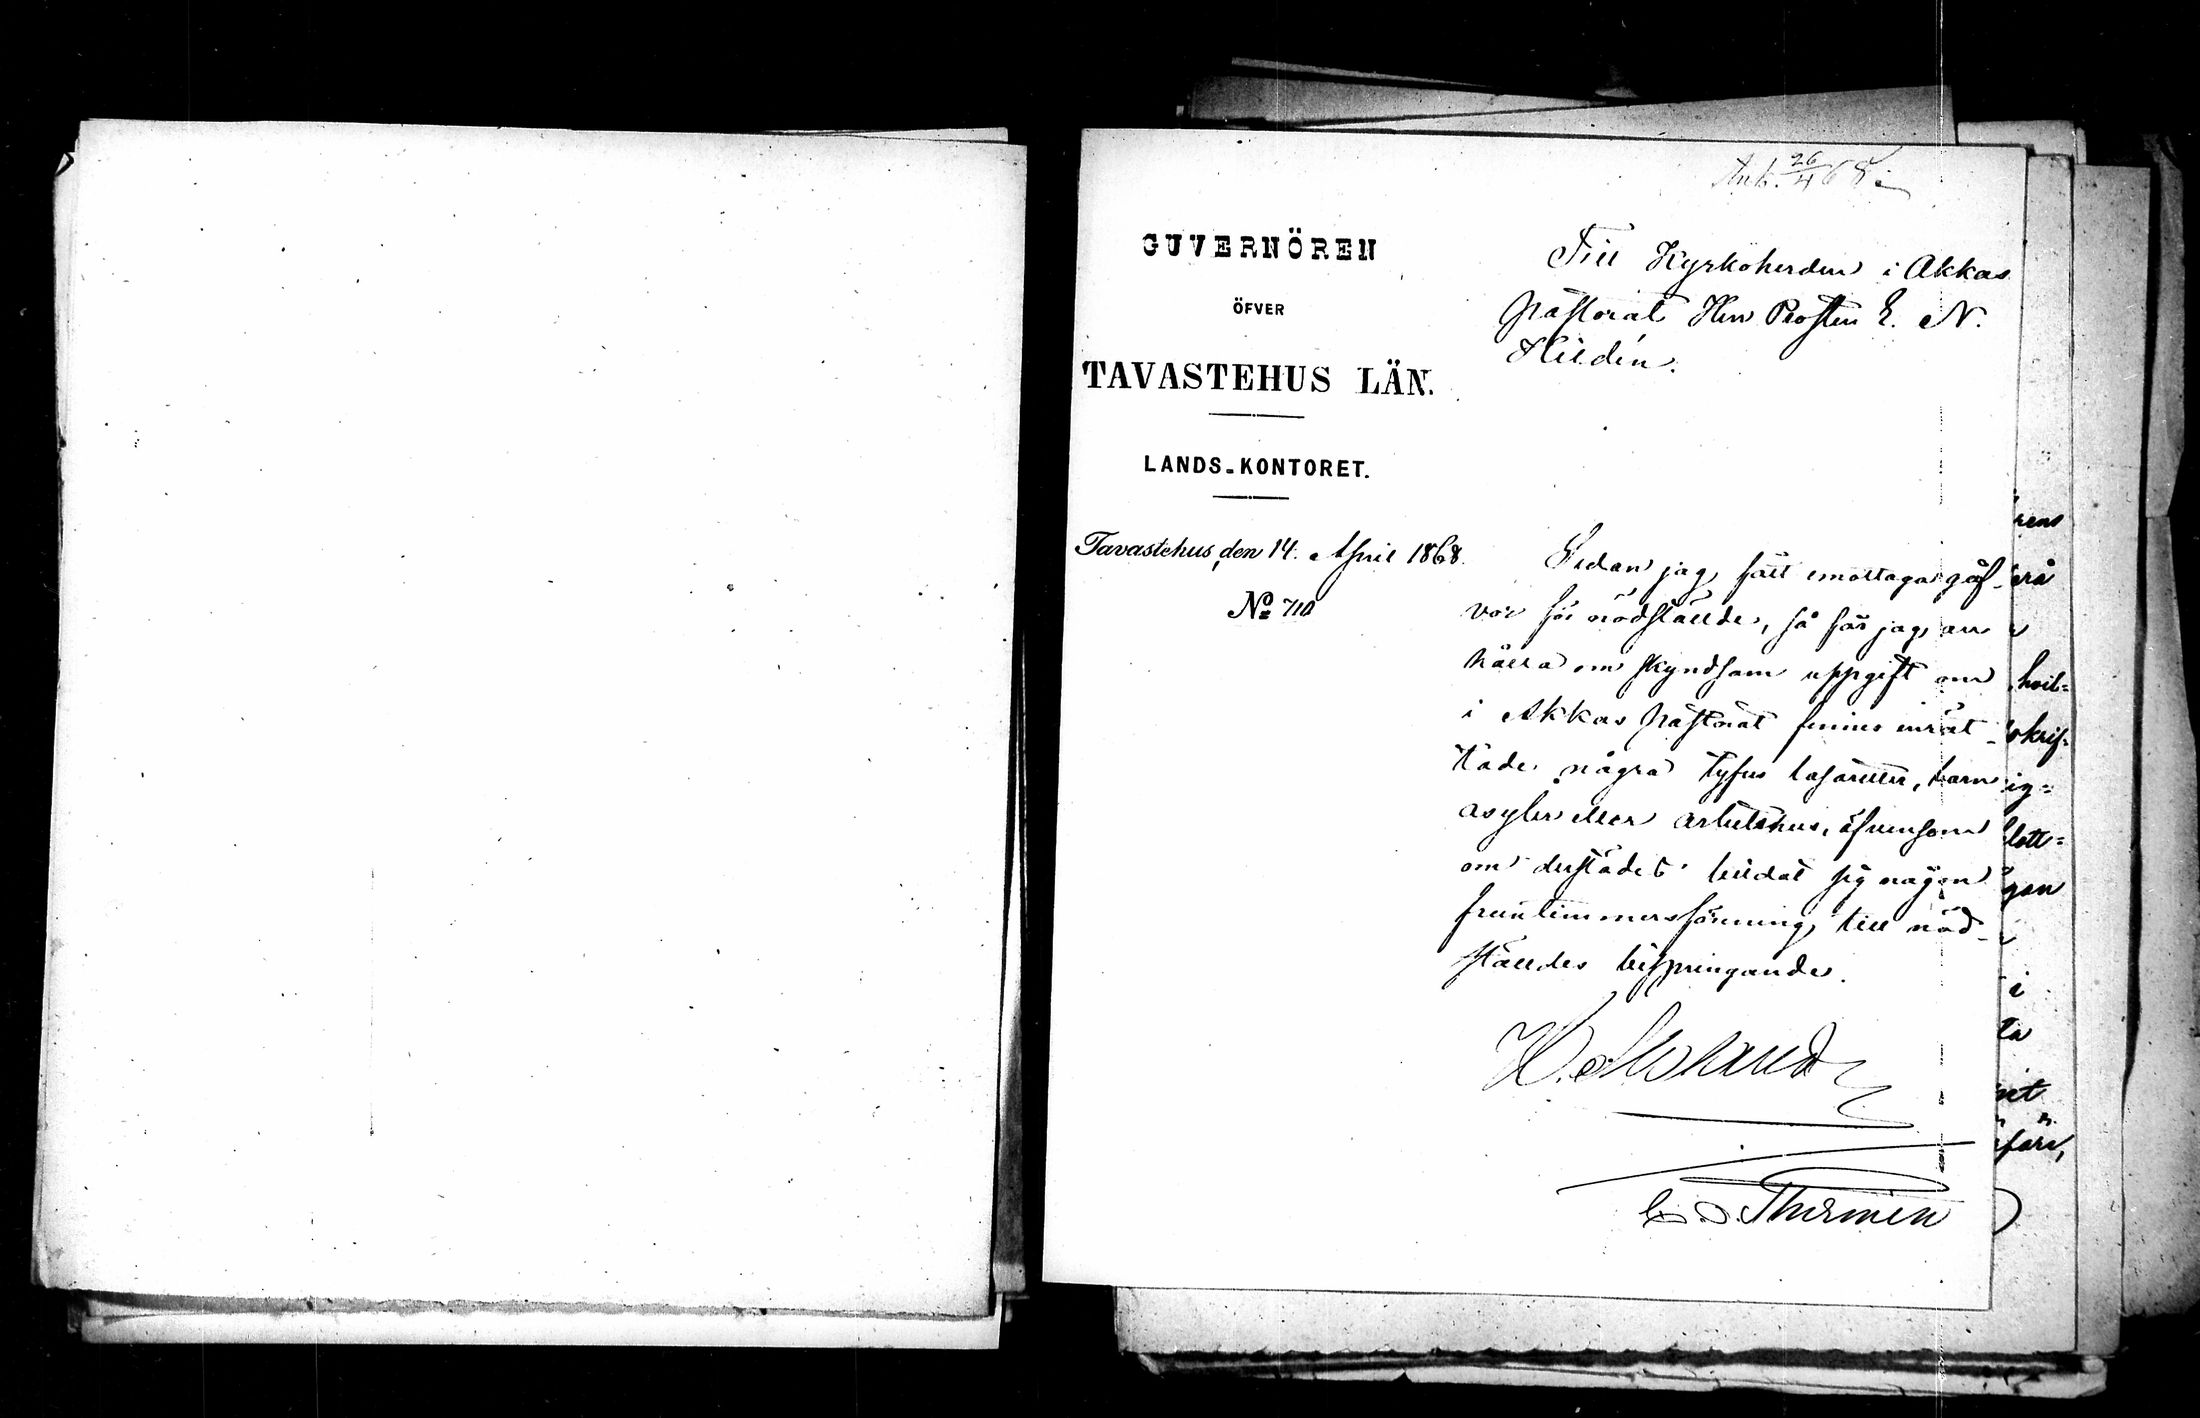 Ank. 26/4 68.
GUVERNÖREN
ÖFVER
TAVASTEHUS LÄN.
LANDS-KONTORET.
Tavastehus, den 14. April 1868.
No 710
Till Kyrkoherden i Akkas
Pastorat Herr Prosten E. N.
Hildén.
Sedan jag fått emottaga gåf-
vor för nödställde, så får jag an
hålla om skyndsam uppgift om
i Akkas pastorat finnes inrät-
tade några tyfus lasaretter, barn
asyler eller arbetshus, äfvensom
om derstädes bildat sig någon
fruntimmersförening till nöd-
ställdes bispringande.
Thermén
rens
hvil=
skrif=
ig=
lott=
gon
i
ta